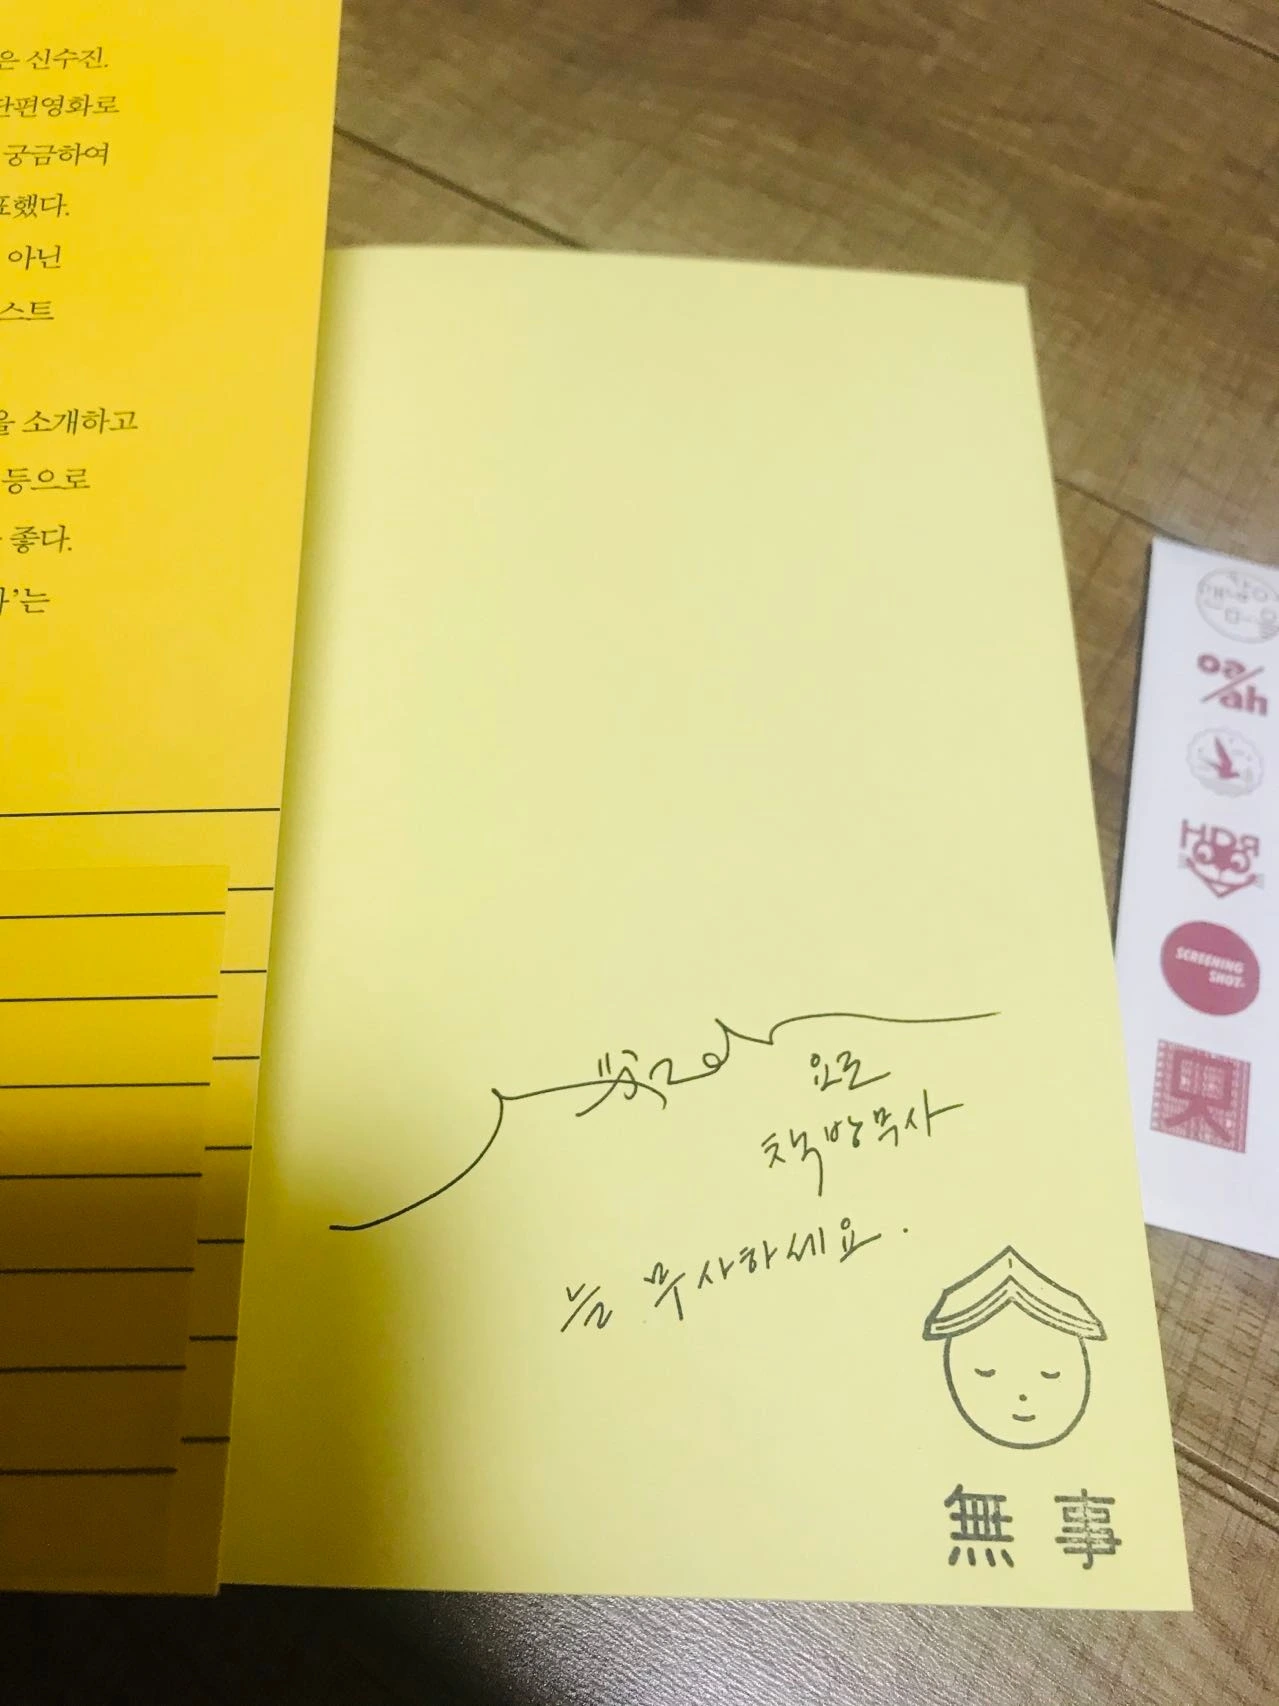 은 신수진.
단편영화로
궁금하여
표했다.
아닌
스트
을 소개하고
등으로
좋다.
는
요조
책방무사
늘 무사하세요.
無事
oe/ah
SCREENING
SHOT.